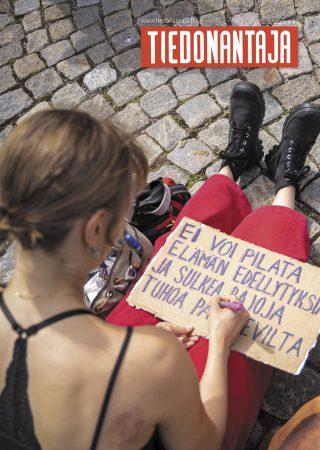 www.tiedonantaja.fi
TIEDONANTAJA
EI VOI PILATA
ELÄMÄN EDELLYTYKSIÄ
JA SULKEA RAJOJA
TUHOA